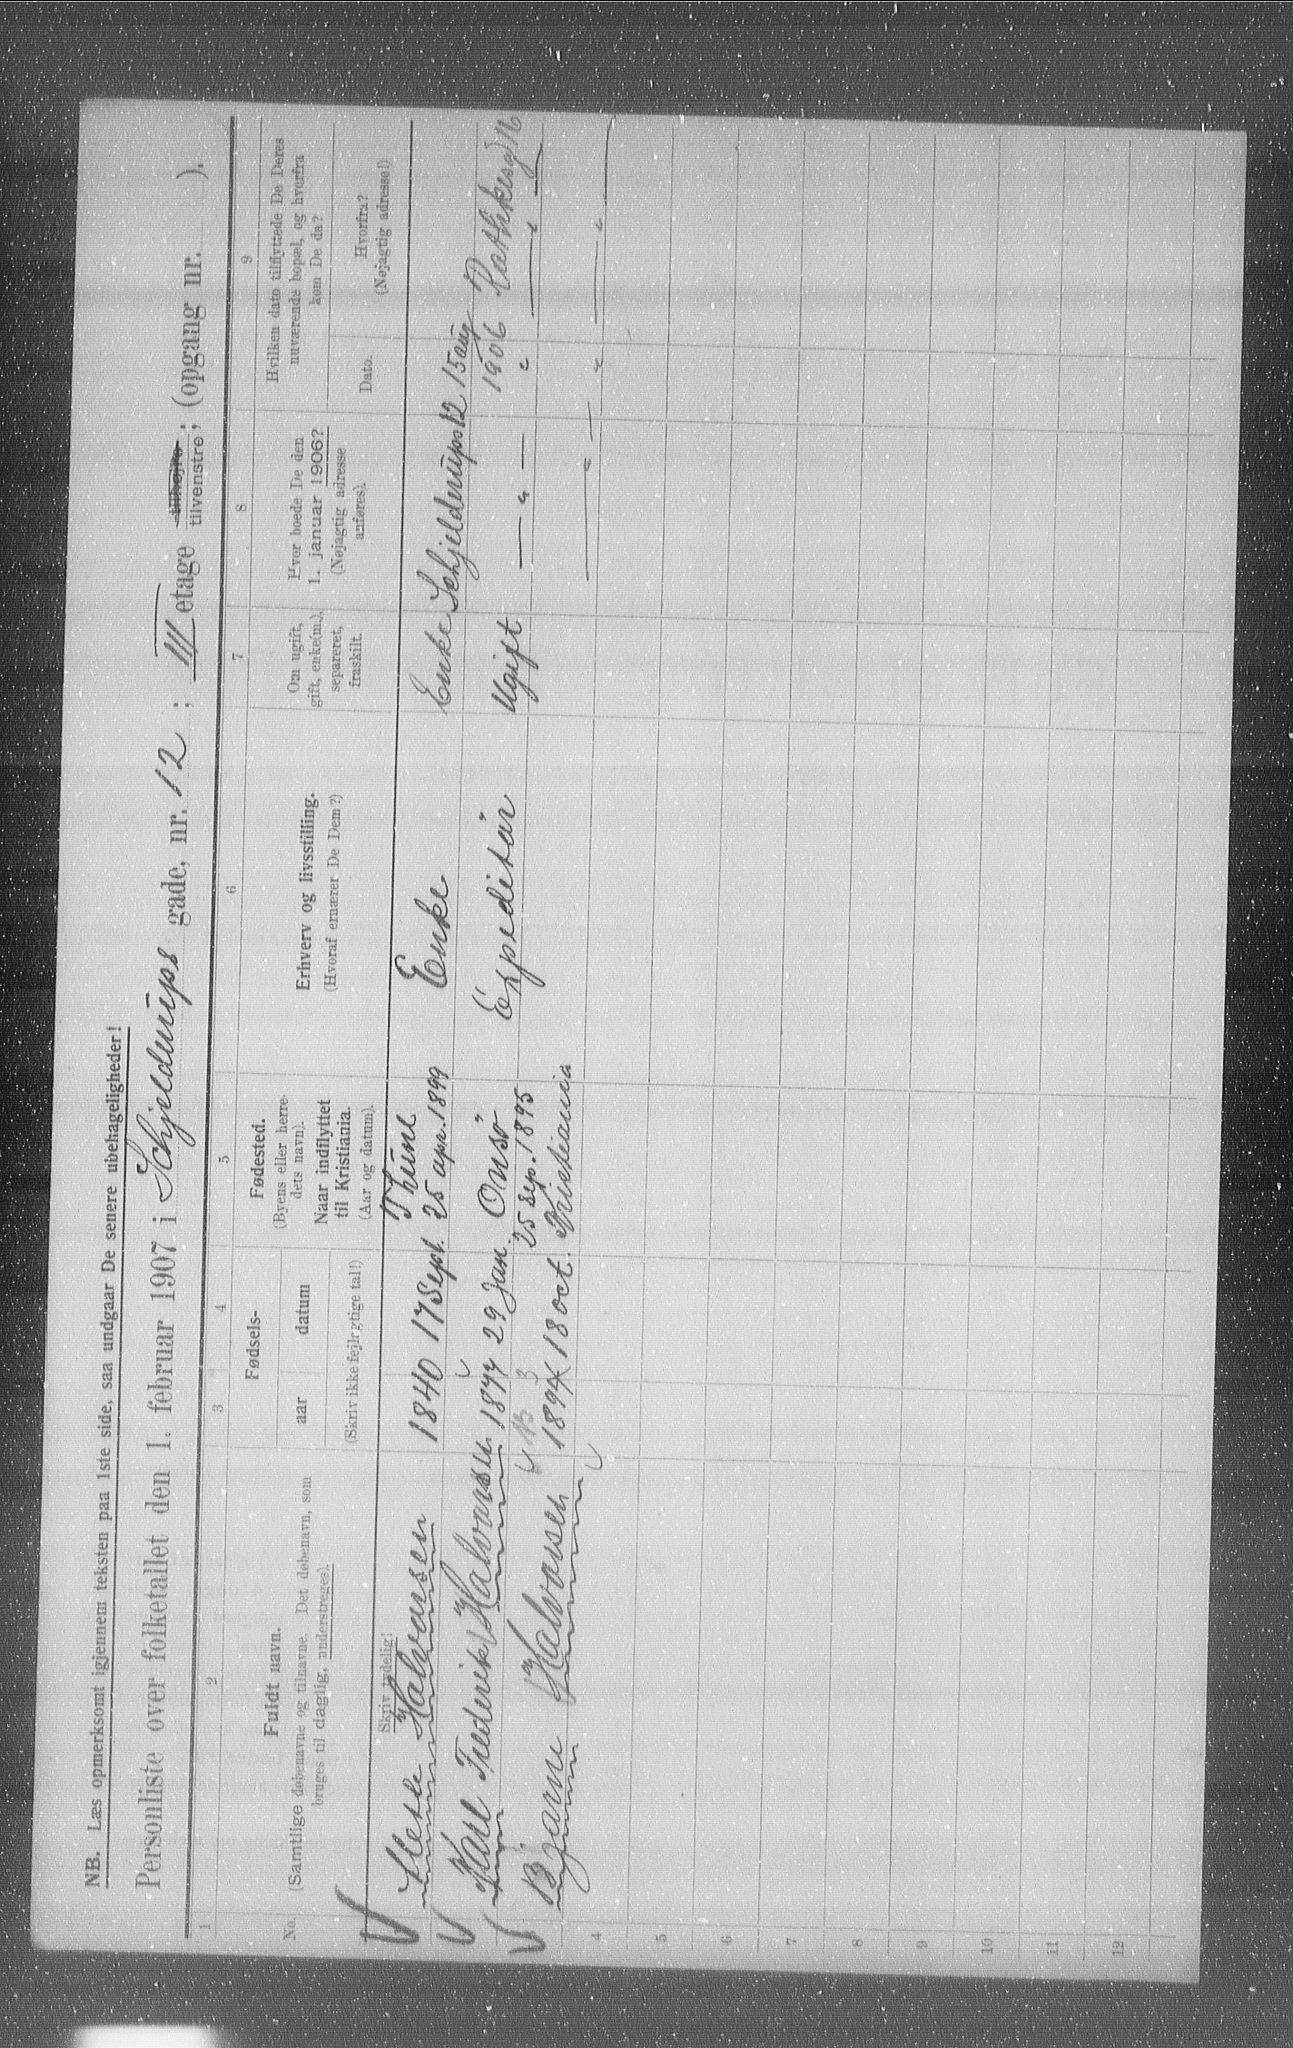 NB. Læs opmerksomt igjennem teksten paa 1ste side, saa undgaar De senere ubehageligheder!
Personliste over folketallet den 1. februar 1907 i Schjelderups gade, nr. 12; III etage tilhøjre tilvenstre; (opgang nr. ).
1 2 3 4 5 6 7 8 9
No.
Fuldt navn.
(Samtlige døbenavne og tilnavne. Det døbenavn, som
bruges til daglig, understreges).
Skriv tydelig!
Fødsels-
aar datum
(Skriv ikke fejlagtige tal!)
Fødested.
(Byens eller herre-
dets navn).
Naar indflyttet
til Kristiania.
(Aar og datum).
Erhverv og livsstilling.
(Hvoraf ernærer De Dem?)
Om ugift,
gift, enke(m.),
separeret,
fraskilt.
Hvor boede De den
1. januar 1906?
(Nøjagtig adresse
anføres).
Hvilken dato tilflyttede De Deres
nuværende bopæl, og hvorfra
kom De da?
Dato.
Hvorfra?
(Nøjagtig adresse!)
Halvorsen 1840 17 Sept. Thune 25 apr. 1899 Enke Enke Schjelderups 12 15 aug
1906 Rathkesg
Karl Frederik Halvorsen 1877 29 Jan. Onsø Expeditør Ugift — " — " — " —
25 Sep. 1895
Bjarne Halvorsen 1894 18 oct. Kristiania — " — " — " —
4
5
6
7
8
9
10
11
12